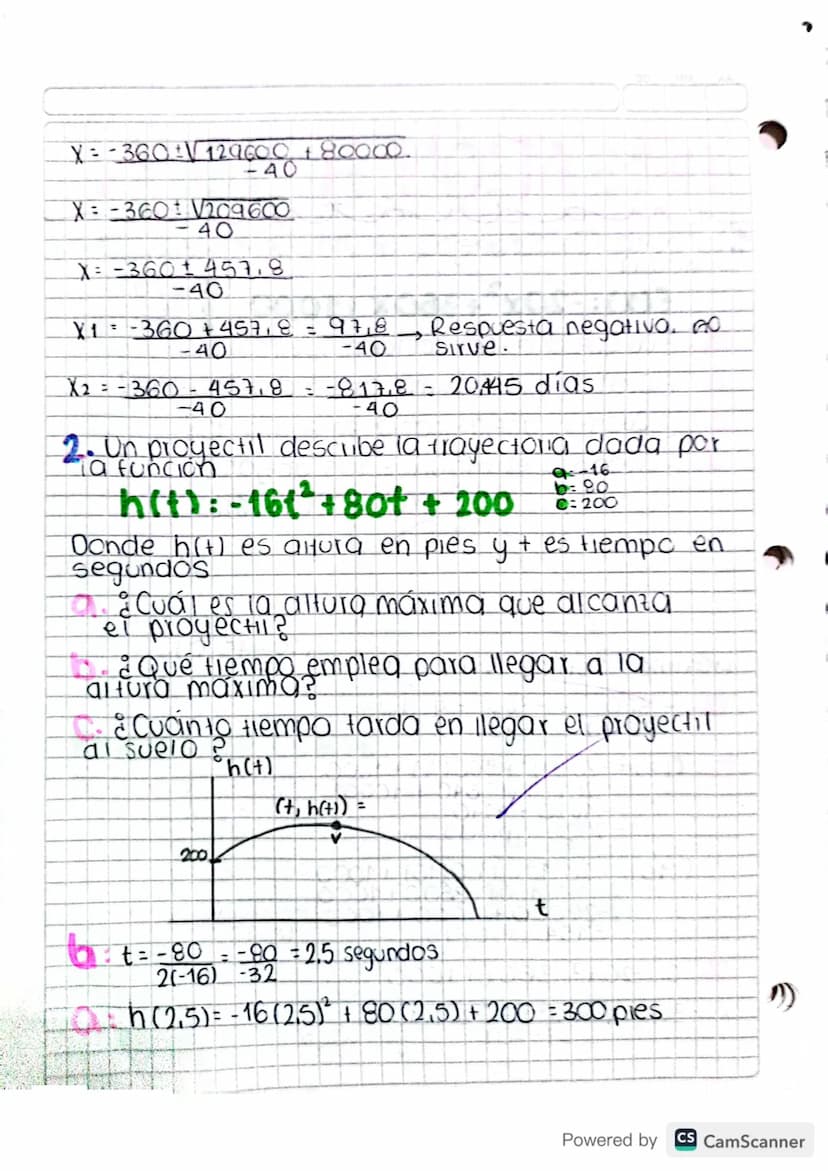 X = -360 ± √129600 + 80000
-40
X = -360 ± √209600
-40
X = -360 ± 457,8
-40
X1 = -360 + 457,8 = 97,8 → Respuesta negativo. no
-40 -40 sirve.
X2 = -360 - 457,8 = -817,8 = 20,445 días
-40 -40
2. Un proyectil describe la trayectoria dada por
la función
a=-16
h(t): -16t² + 80t + 200
b= 80
c= 200
Donde h(t) es altura en pies y t es tiempo en
segundos
a. ¿Cuál es la altura máxima que alcanza
el proyectil?
b. ¿Qué tiempo emplea para llegar a la
altura máxima?
c. ¿Cuánto tiempo tarda en llegar el proyectil
al suelo?
h(t)
(t, h(t)) =
v
200
t
b: t = -80 = -80 = 2,5 segundos
2(-16) -32
a: h(2,5) = -16(2,5)² + 80(2,5) + 200 = 300 pies
Powered by CS CamScanner